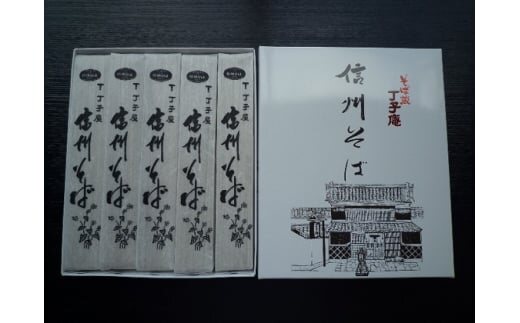 丁子庵
信州そば
丁子庵
信州そば
丁子庵
信州そば
丁子庵
信州そば
丁子庵
信州そば
そば蔵
丁子庵
信州そば